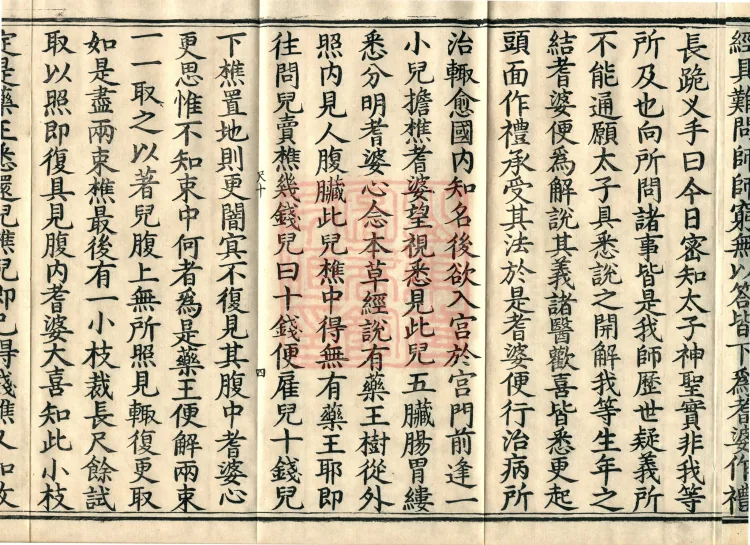 經具難問師師窮無以答皆下為耆婆作禮
長跪叉手曰今日密知太子神聖實非我等
所及也向所問諸事皆是我師歷世疑義所
不能通願太子具悉說之開解我等生年之
結耆婆便為解說其義諸醫歡喜皆悉更起
頭面作禮承受其法於是耆婆便行治病所
治輙愈國內知名後欲入宮於宮門前逢一
小兒擔樵耆婆望視悉見此兒五臟腸胃縷
悉分明耆婆心念本草經說有藥王樹從外
照內見人腹臟此兒樵中得無有藥王耶即
往問兒賣樵幾錢兒曰十錢便雇兒十錢兒
四
下樵置地則更闇冥不復見其腹中耆婆心
更思惟不知束中何者為是藥王便解兩束
一一取之以著兒腹上無所照見輙復更取
如是盡兩束樵最後有一小枝裁長尺餘試
取以照即復具見腹內耆婆大喜知此小枝
定是藥王悉還兒樵兒即已得錢樵又如故